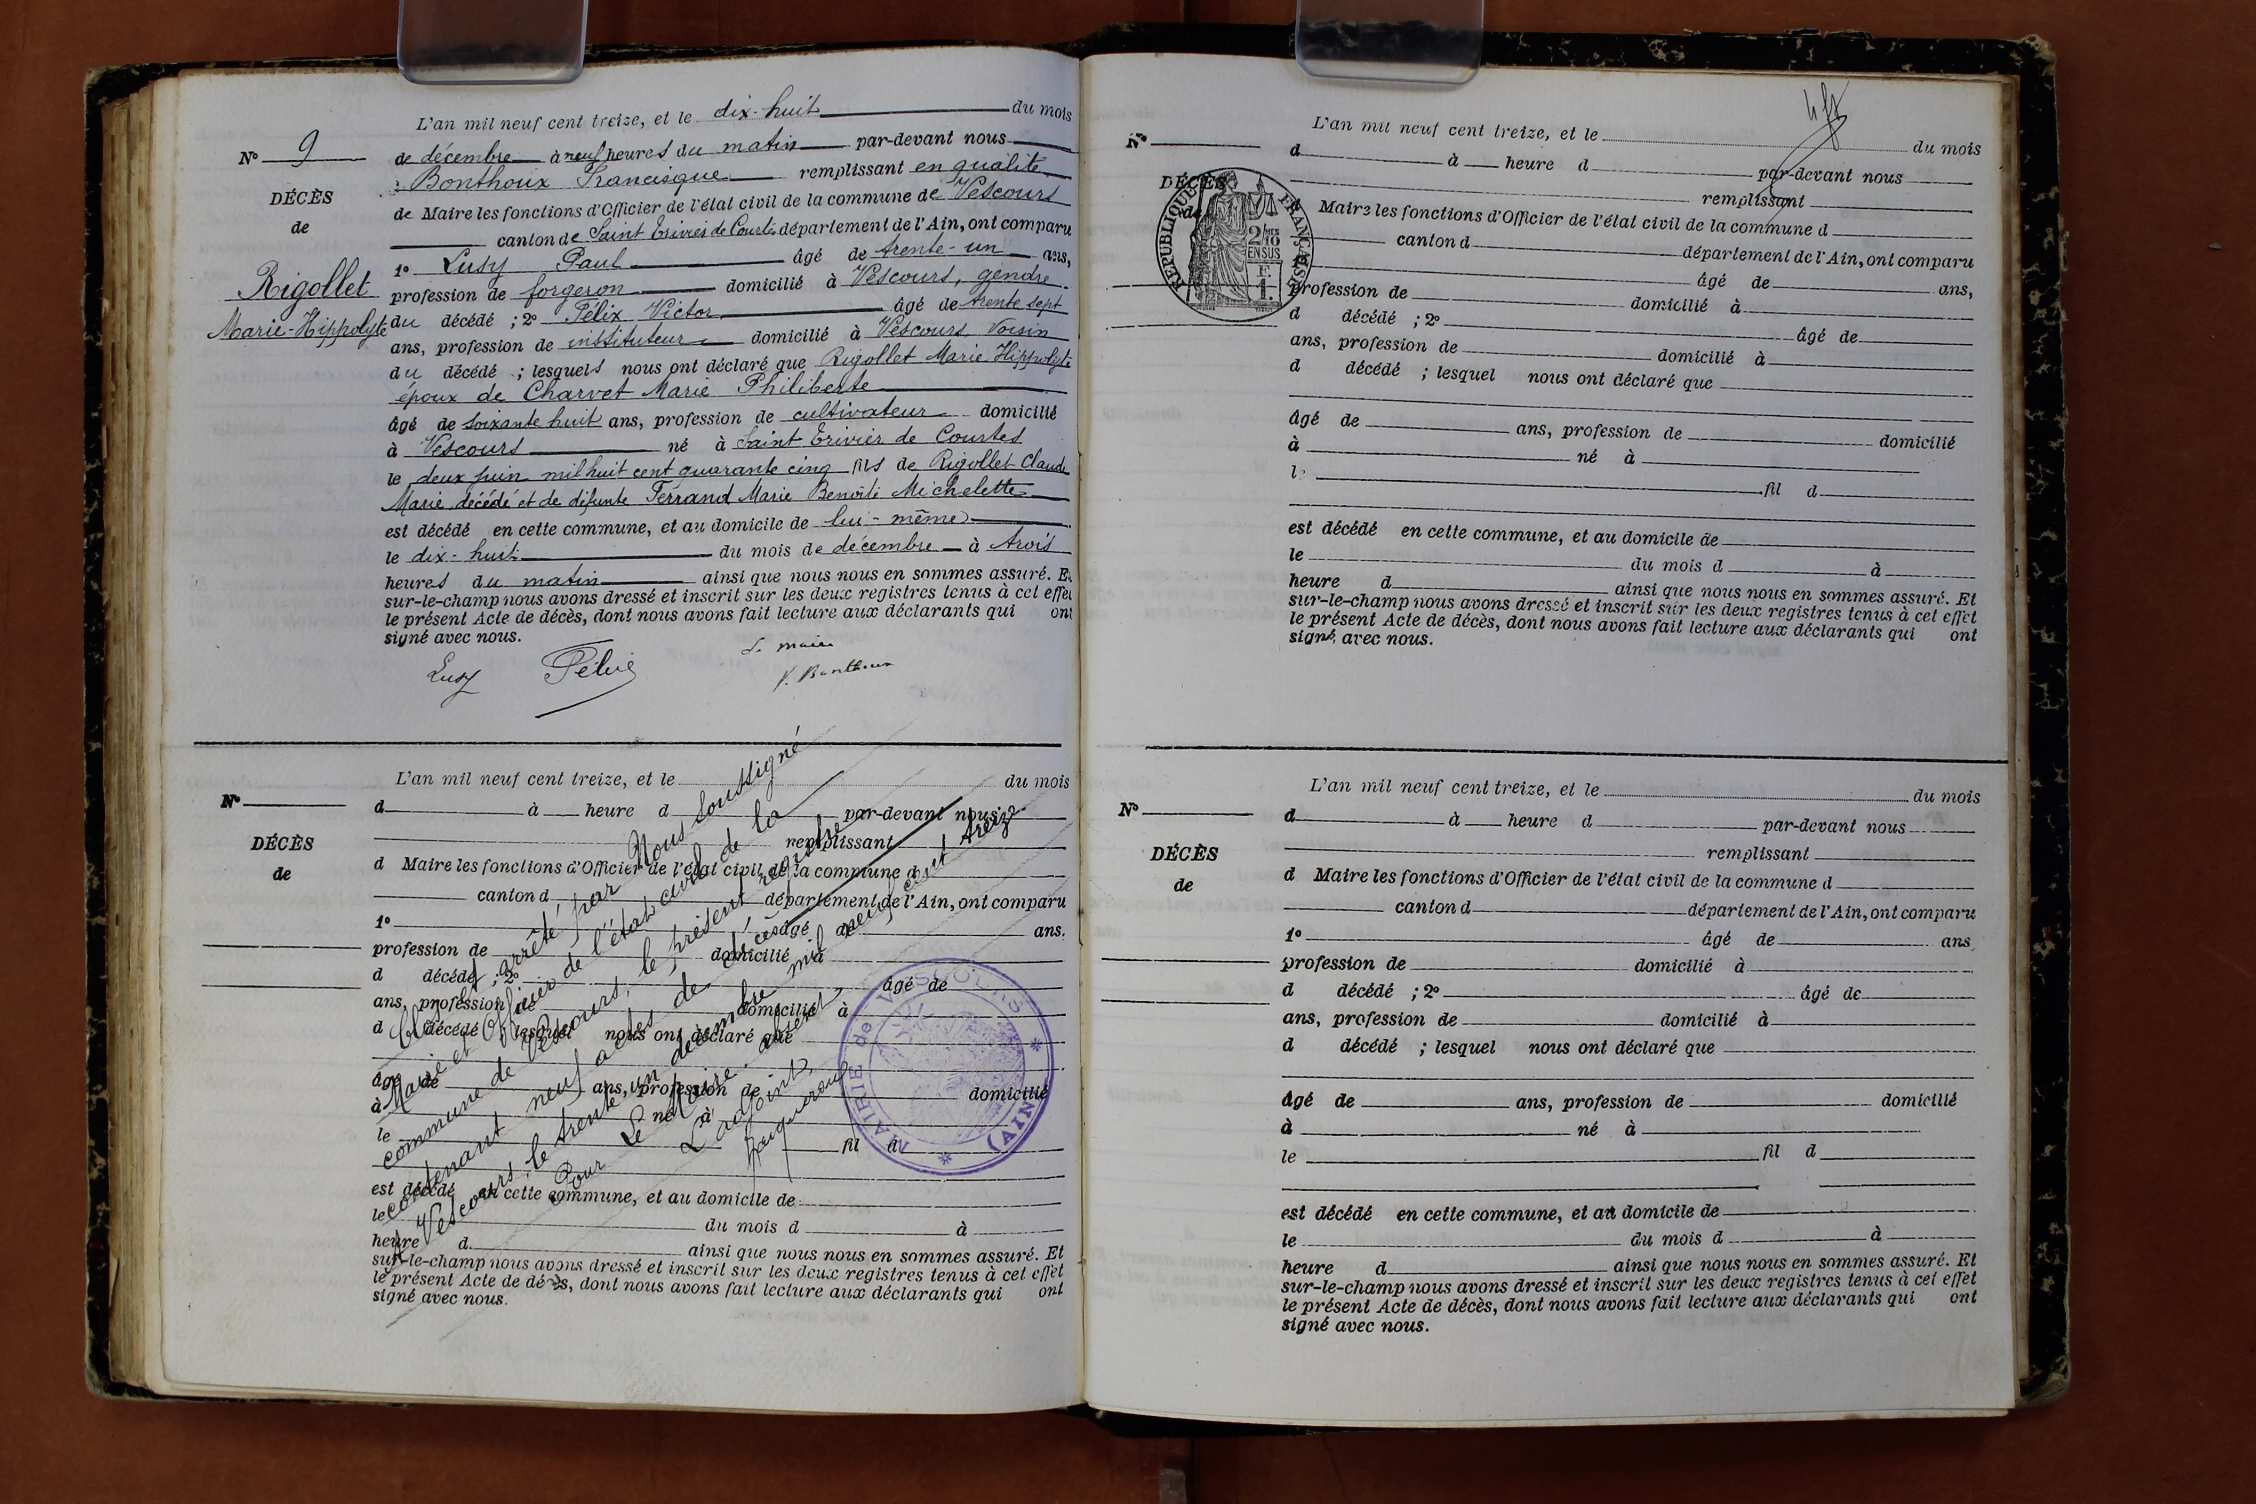 L'an mil neuf cent treize, et le dix-huit du mois
N° 9
de décembre à neuf heures du matin par-devant nous
Bonthoux Francisque remplissant en qualité
DÉCÈS
de
de Maire les fonctions d'Officier de l'état civil de la commune de Vescours
canton de Saint Trivier de Courtes département de l'Ain, ont comparu
1° Lusy Paul âgé de trente-un ans,
Rigollet
Marie-Hippolyte
profession de forgeron domicilié à Vescours, gendre
du décédé ; 2° Félix Victor âgé de trente sept
ans, profession de instituteur domicilié à Vescours voisin
du décédé ; lesquels nous ont déclaré que Rigollet Marie Hippolyte
époux de Charvet Marie Philiberte
âgé de soixante huit ans, profession de cultivateur domicilié
à Vescours né à Saint Trivier de Courtes
le deux juin mil huit cent quarante cinq fils de Rigollet Claude
Marie décédé et de défunte Ferrand Marie Benoîte Michelette
est décédé en cette commune, et au domicile de lui-même
le dix-huit du mois de décembre à trois
heures du matin ainsi que nous nous en sommes assuré. Et
sur-le-champ nous avons dressé et inscrit sur les deux registres tenus à cet effet
le présent Acte de décès, dont nous avons fait lecture aux déclarants qui ont
signé avec nous.
Lusy Félix Le maire
F. Bonthoux
L'an mil neuf cent treize, et le du mois
N°
d à heure d par-devant nous
remplissant
DÉCÈS
de
d Maire les fonctions d'Officier de l'état civil de la commune d
canton d département de l'Ain, ont comparu
1° âgé de ans.
profession de domicilié à
d décédé ; 2° âgé de
ans, profession de domicilié à
d décédé lesquel nous ont déclaré que
âgé de ans, profession de domicilié
à né à
le fil d
est décédé en cette commune, et au domicile de
le du mois d à
heure d ainsi que nous nous en sommes assuré. Et
sur-le-champ nous avons dressé et inscrit sur les deux registres tenus à cet effet
le présent Acte de décès, dont nous avons fait lecture aux déclarants qui ont
signé avec nous.
Clos et arrêté par Nous soussigné
Maire et Officier de l'état civil de la
commune de Vescours, le présent registre
contenant neuf actes de décès
A Vescours, le trente un décembre mil neuf cent treize
Pour Le Maire absent
L'adjoint,
MAIRIE de VESCOURS
(AIN)
L'an mil neuf cent treize, et le du mois
N°
d à heure d par-devant nous
remplissant
DÉCÈS
de
RÉPUBLIQUE FRANÇAISE
2/10
EN SUS
F.
1.
Maire les fonctions d'Officier de l'état civil de la commune d
canton d département de l'Ain, ont comparu
âgé de ans,
profession de domicilié à
d décédé ; 2° âgé de
ans, profession de domicilié à
d décédé ; lesquel nous ont déclaré que
âgé de ans, profession de domicilié
à né à
le fil d
est décédé en cette commune, et au domicile de
le du mois d à
heure d ainsi que nous nous en sommes assuré. Et
sur-le-champ nous avons dressé et inscrit sur les deux registres tenus à cet effet
le présent Acte de décès, dont nous avons fait lecture aux déclarants qui ont
signé avec nous.
L'an mil neuf cent treize, et le du mois
N°
d à heure d par-devant nous
remplissant
DÉCÈS
de
d Maire les fonctions d'Officier de l'état civil de la commune d
canton d département de l'Ain, ont comparu
1° âgé de ans
profession de domicilié à
d décédé ; 2° âgé de
ans, profession de domicilié à
d décédé ; lesquel nous ont déclaré que
âgé de ans, profession de domicilié
à né à
le fil d
est décédé en cette commune, et au domicile de
le du mois d à
heure d ainsi que nous nous en sommes assuré. Et
sur-le-champ nous avons dressé et inscrit sur les deux registres tenus à cet effet
le présent Acte de décès, dont nous avons fait lecture aux déclarants qui ont
signé avec nous.